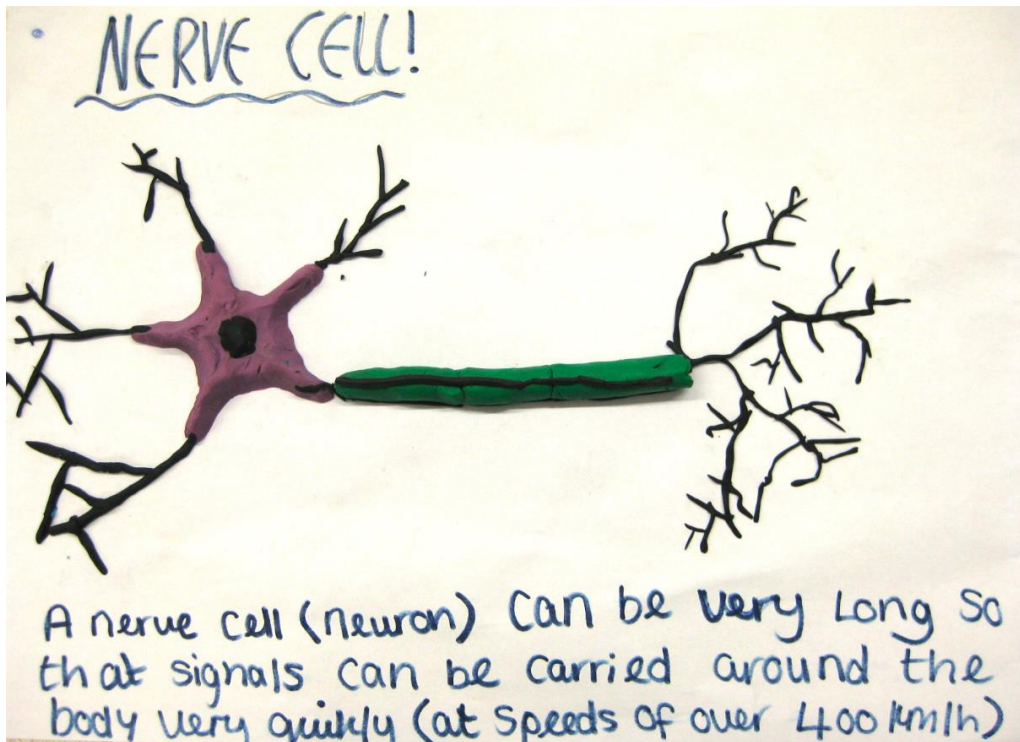 NERVE CELL!
A nerve cell (neuron) can be very long so
that signals can be carried around the
body very quikly (at speeds of over 400 km/h)